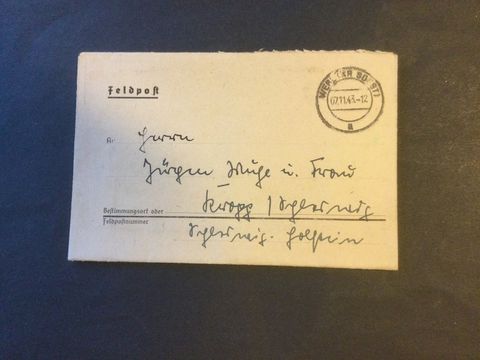 Feldpost
WERL (KR SOEST)
07.11.43.-12
a
An
Herrn
Jürgen Kuhr u. Frau
Kropp / Schleswig
Bestimmungsort oder
Feldpostnummer
Schleswig. Holstein